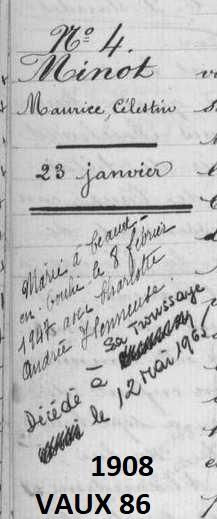 No 4.
Minot
Maurice, Célestin
23 janvier
Marié à Beaumont
en- le 8 février
1947 avec Charlotte
Andrée Henneuse.
Décédé à La Troussaye
le 12 Mai 196
1908
VAUX 86